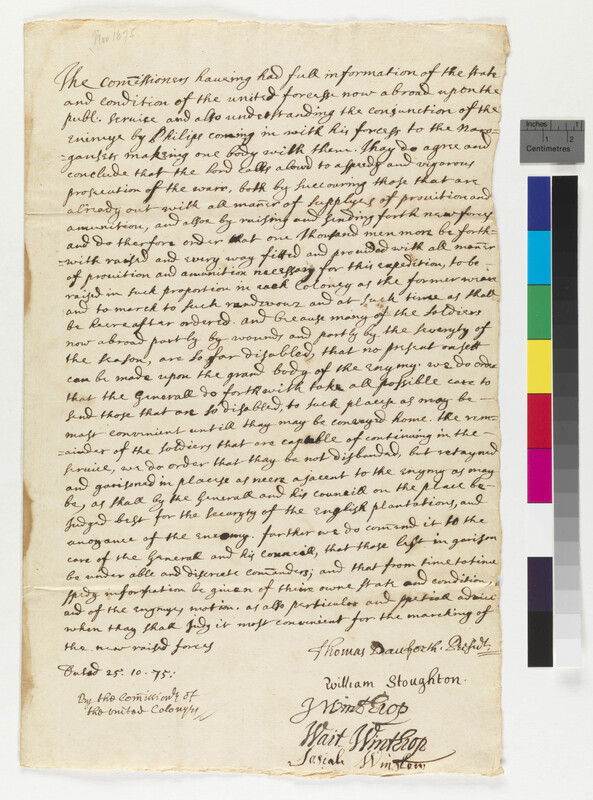 Nov 1675
The Com̄issioners haueing had full information of the state
and condition of the united forcesse now abroad upon the
publ: service and also understanding the conjunction of the
Enimye by Philips coming in with his forcess to the Naro-
-gansets making one body with them. Thay do agree and
conclude that the lord calls aloud to a speedy and vigorous
prosecution of the warr, both by succouring those that are
already out with all maner of supplyes of prouition and
amunition, and allso by raising and sending forth new forces
and do therfore order that one thousand men more be forth-
-with raised and every way fitted and prouided with all maner
of prouition and amunition necessary for this expedition, to be
raised in such proportion in each Colony as the former weare
and to march to such randevouz and at such time as shall
be hereafter ordered. and because many of the soldiers
now abroad partly by wounds and partly by the severyty of
the season, are so far disabled, that no present onsett
can be made upon the grand body of the enymy. we do order
that the Generall do forthwith take all possible care to
send those that are so disabled, to such placess as may be
most convenient untill thay may be conveyed home. the rem-
-ainder of the soldiers that are capable of continuing in the
service, we do order that thay be not disbanded, but retayned
and garisoned in placess as neere adjacent to the enymy as may
be, as shall by the Generall and his councill on the place be
Judged best for the securyty of the English plantations, and
anoyance of the enemy. farther we do com̄end it to the
care of the Generall and his councill, that those left in garison
be under able and discrete com̄anders; and that from time to time
spedy information be giuen of theire owne state and condition,
and of the enymyes motion. as also perticular and spetiall advice
when thay shall Judg it most convenient for the marching of
the new raised forces
Thomas Danforth. Presidt
Dated 25. 10. 75:
William Stoughton.
By the Com̄issionrs of
the united Colonyes
J Winthrop
Wait Winthrop
Josiah Winslow
Inches
1
2
Centimetres